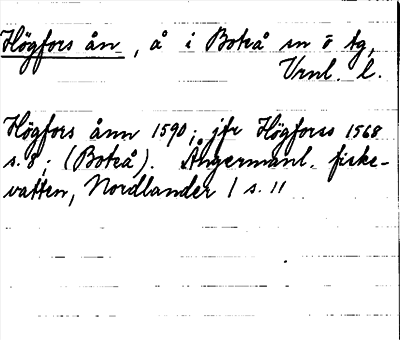 Högfors ån, å i Boteå sn ö tg,
Vrnl. l.
Högfors ånn 1590; jfr Högforss 1568
s. 8; (Boteå). Ångermanl. fiske-
vatten, Nordlander 1 s. 11